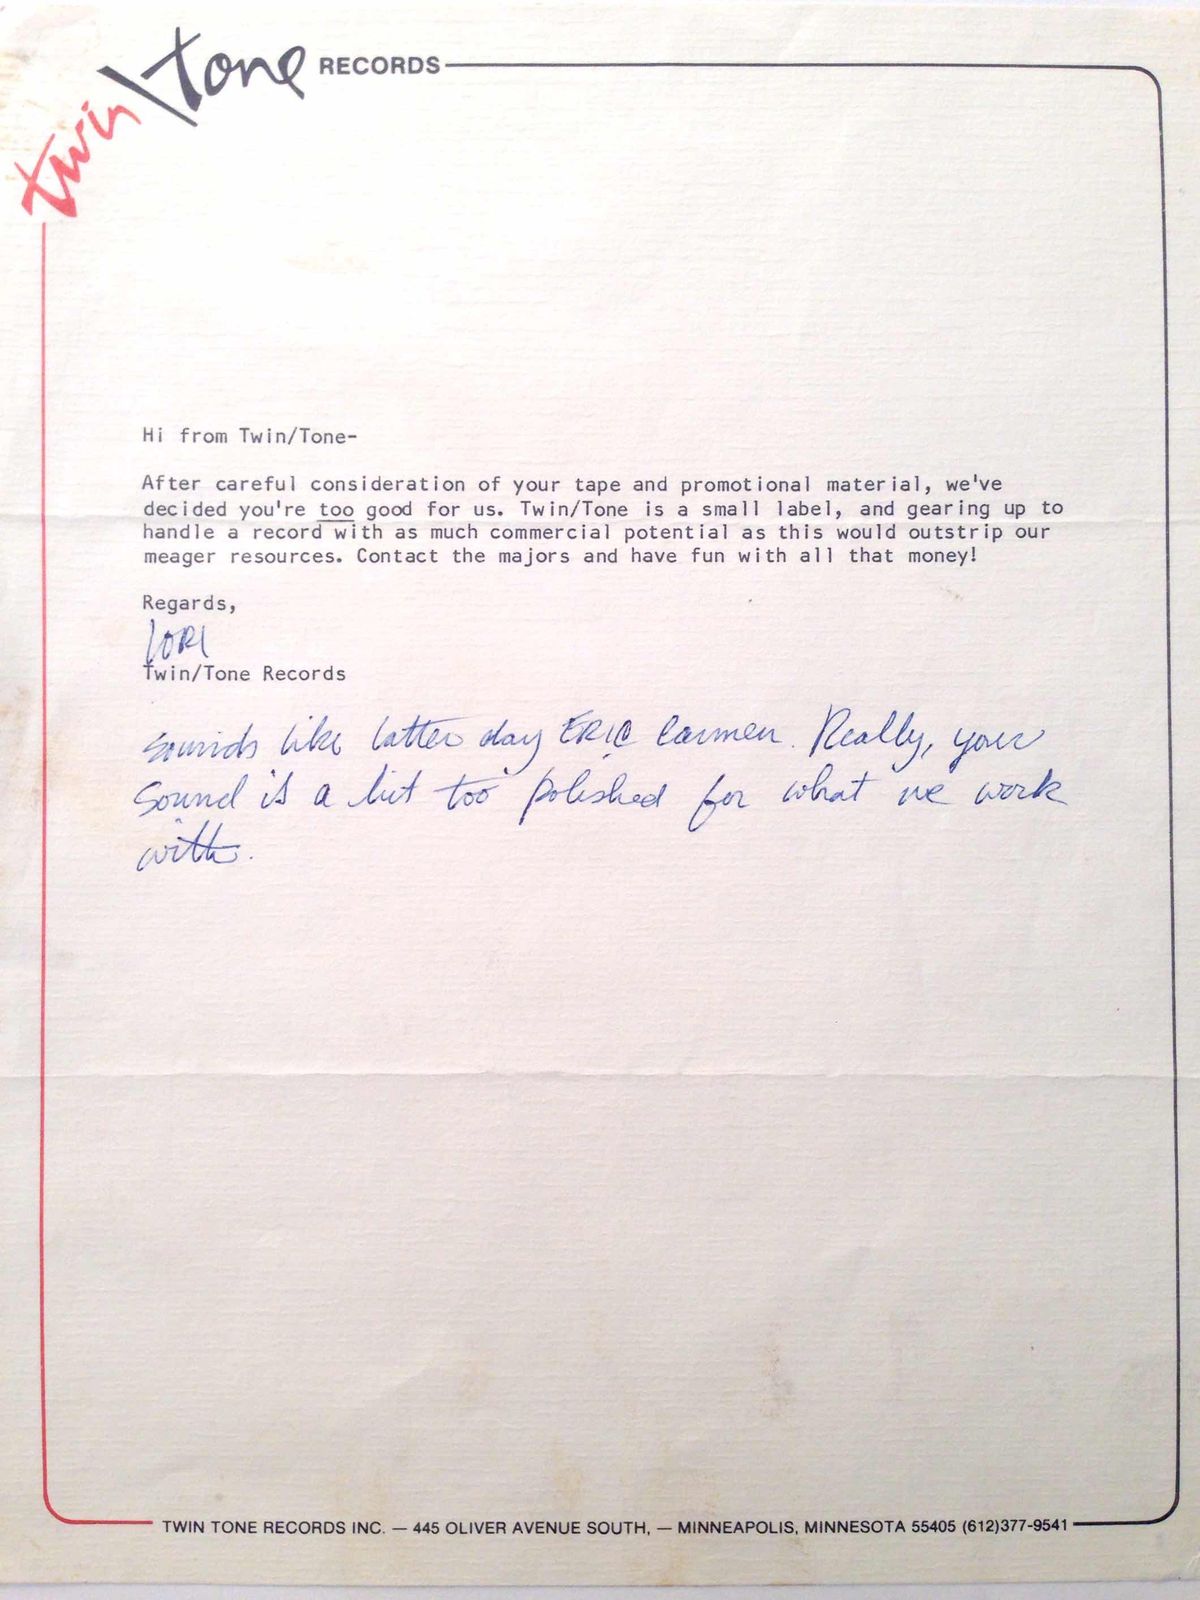 twin\tone RECORDS
Hi from Twin/Tone-
After careful consideration of your tape and promotional material, we've
decided you're too good for us. Twin/Tone is a small label, and gearing up to
handle a record with as much commercial potential as this would outstrip our
meager resources. Contact the majors and have fun with all that money!
Regards,
LORI
Twin/Tone Records
sounds like latter day ERIC Carmen. Really, your
sound is a bit too polished for what we work
with.
TWIN TONE RECORDS INC. — 445 OLIVER AVENUE SOUTH, — MINNEAPOLIS, MINNESOTA 55405 (612)377-9541